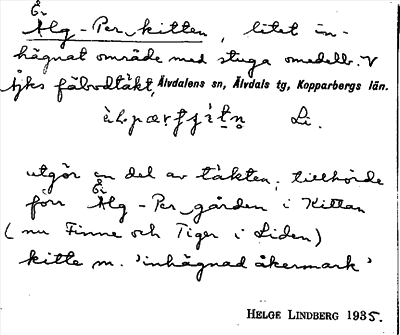 Är
Älg-Per kitten, litet in-
hägnat område med stuga omedelb. V
fäbodtäkt, Älvdalens sn, Älvdals tg, Kopparbergs län.
Li.
utgör en del av täkten; tillhörde
förr Älg-Per gården i Kittan
(nu Finne och Tiger i Liden)
kitte m. 'inhägnad åkermark'
HELGE LINDBERG 1935.